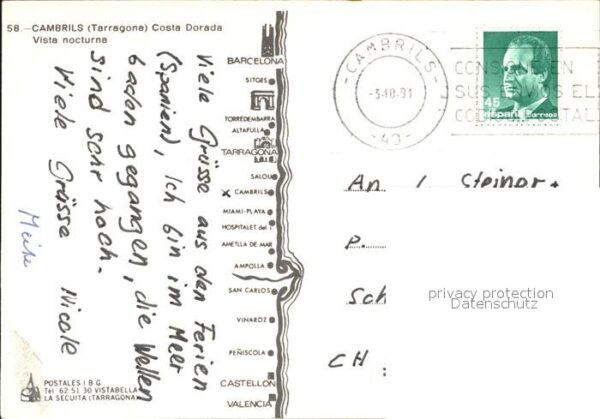 58.-CAMBRILS (Tarragona) Costa Dorada
Vista nocturna
Viele Grüsse aus den Ferien
(Spanien), Ich bin im Meer
baden gegangen, die Wellen
sind sehr hoch.
Viele Grüsse Nicole
Meike
BARCELONA
SITGES
TORREDEMBARRA
ALTAFULLA
TARRAGONA
SALOU
x CAMBRILS
MIAMI-PLAYA
HOSPITALET del I
AMETLLA DE MAR
AMPOLLA
SAN CARLOS
VINAROZ
PEÑISCOLA
CASTELLON
VALENCIA
POSTALES I B G
Tel 62 51 30 VISTABELLA
LA SECUITA (TARRAGONA)
-CAMBRILS-
-3.10.91
-43-
CONS EN
SUS OS EL
CODIGO POSTAL
45
España Correos
An Steiner
P.
Sch
CH
privacy protection
Datenschutz